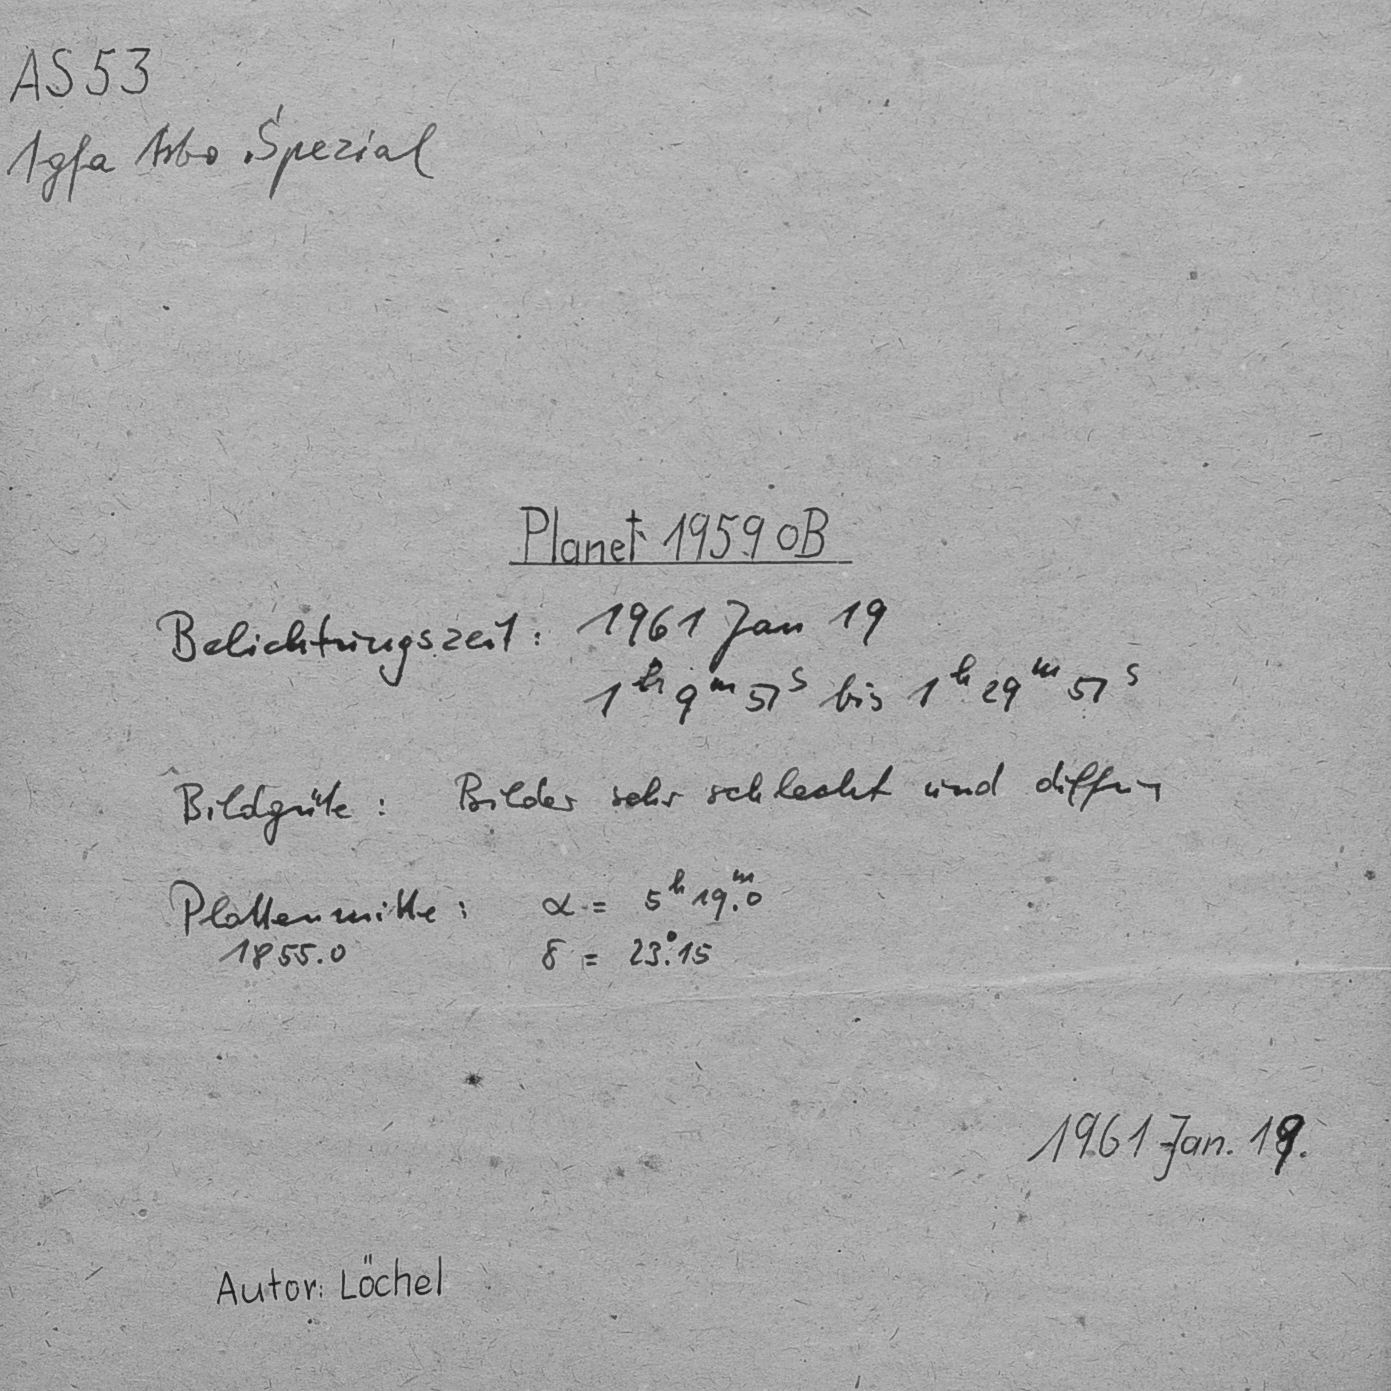 AS 53
Agfa Astro Spezial
Planet 1959 OB
Belichtungszeit: 1961 Jan 19
1h 9m 51s bis 1h 29m 51s
Bildgüte: Bilder sehr schlecht und diffus
Plattenmitte: α = 5h 19m.0
1855.0 δ = 23°.15
1961 Jan. 19.
Autor: Löchel